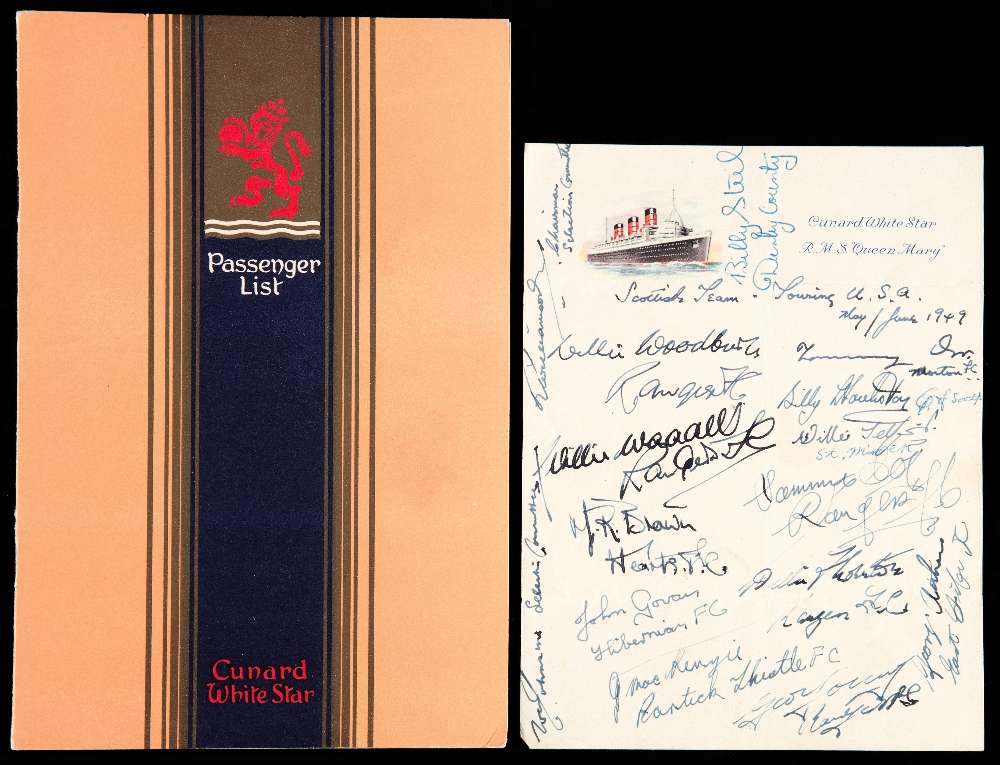 Passenger
List
Cunard
White Star
Chairman
Selection Committee
Billy Steel
Derby County
Cunard White Star
R.M.S. "Queen Mary"
Scottish Team - Touring U.S.A.
May/June 1949
Willie Woodburn
Rangers FC
Tommy Orr
Morton FC
Billy Houliston
Q of South
Willie Waddell
Rangers FC
Willie Telfer
St. Mirren
Sammy Cox
Rangers FC
A.R. Brown
Hearts. F.C.
Willie Thornton
Rangers F.C.
John Govan
Hibernian FC
J MacKenzie
Partick Thistle FC
Geo Young
Rangers FC
Selection Committee
East